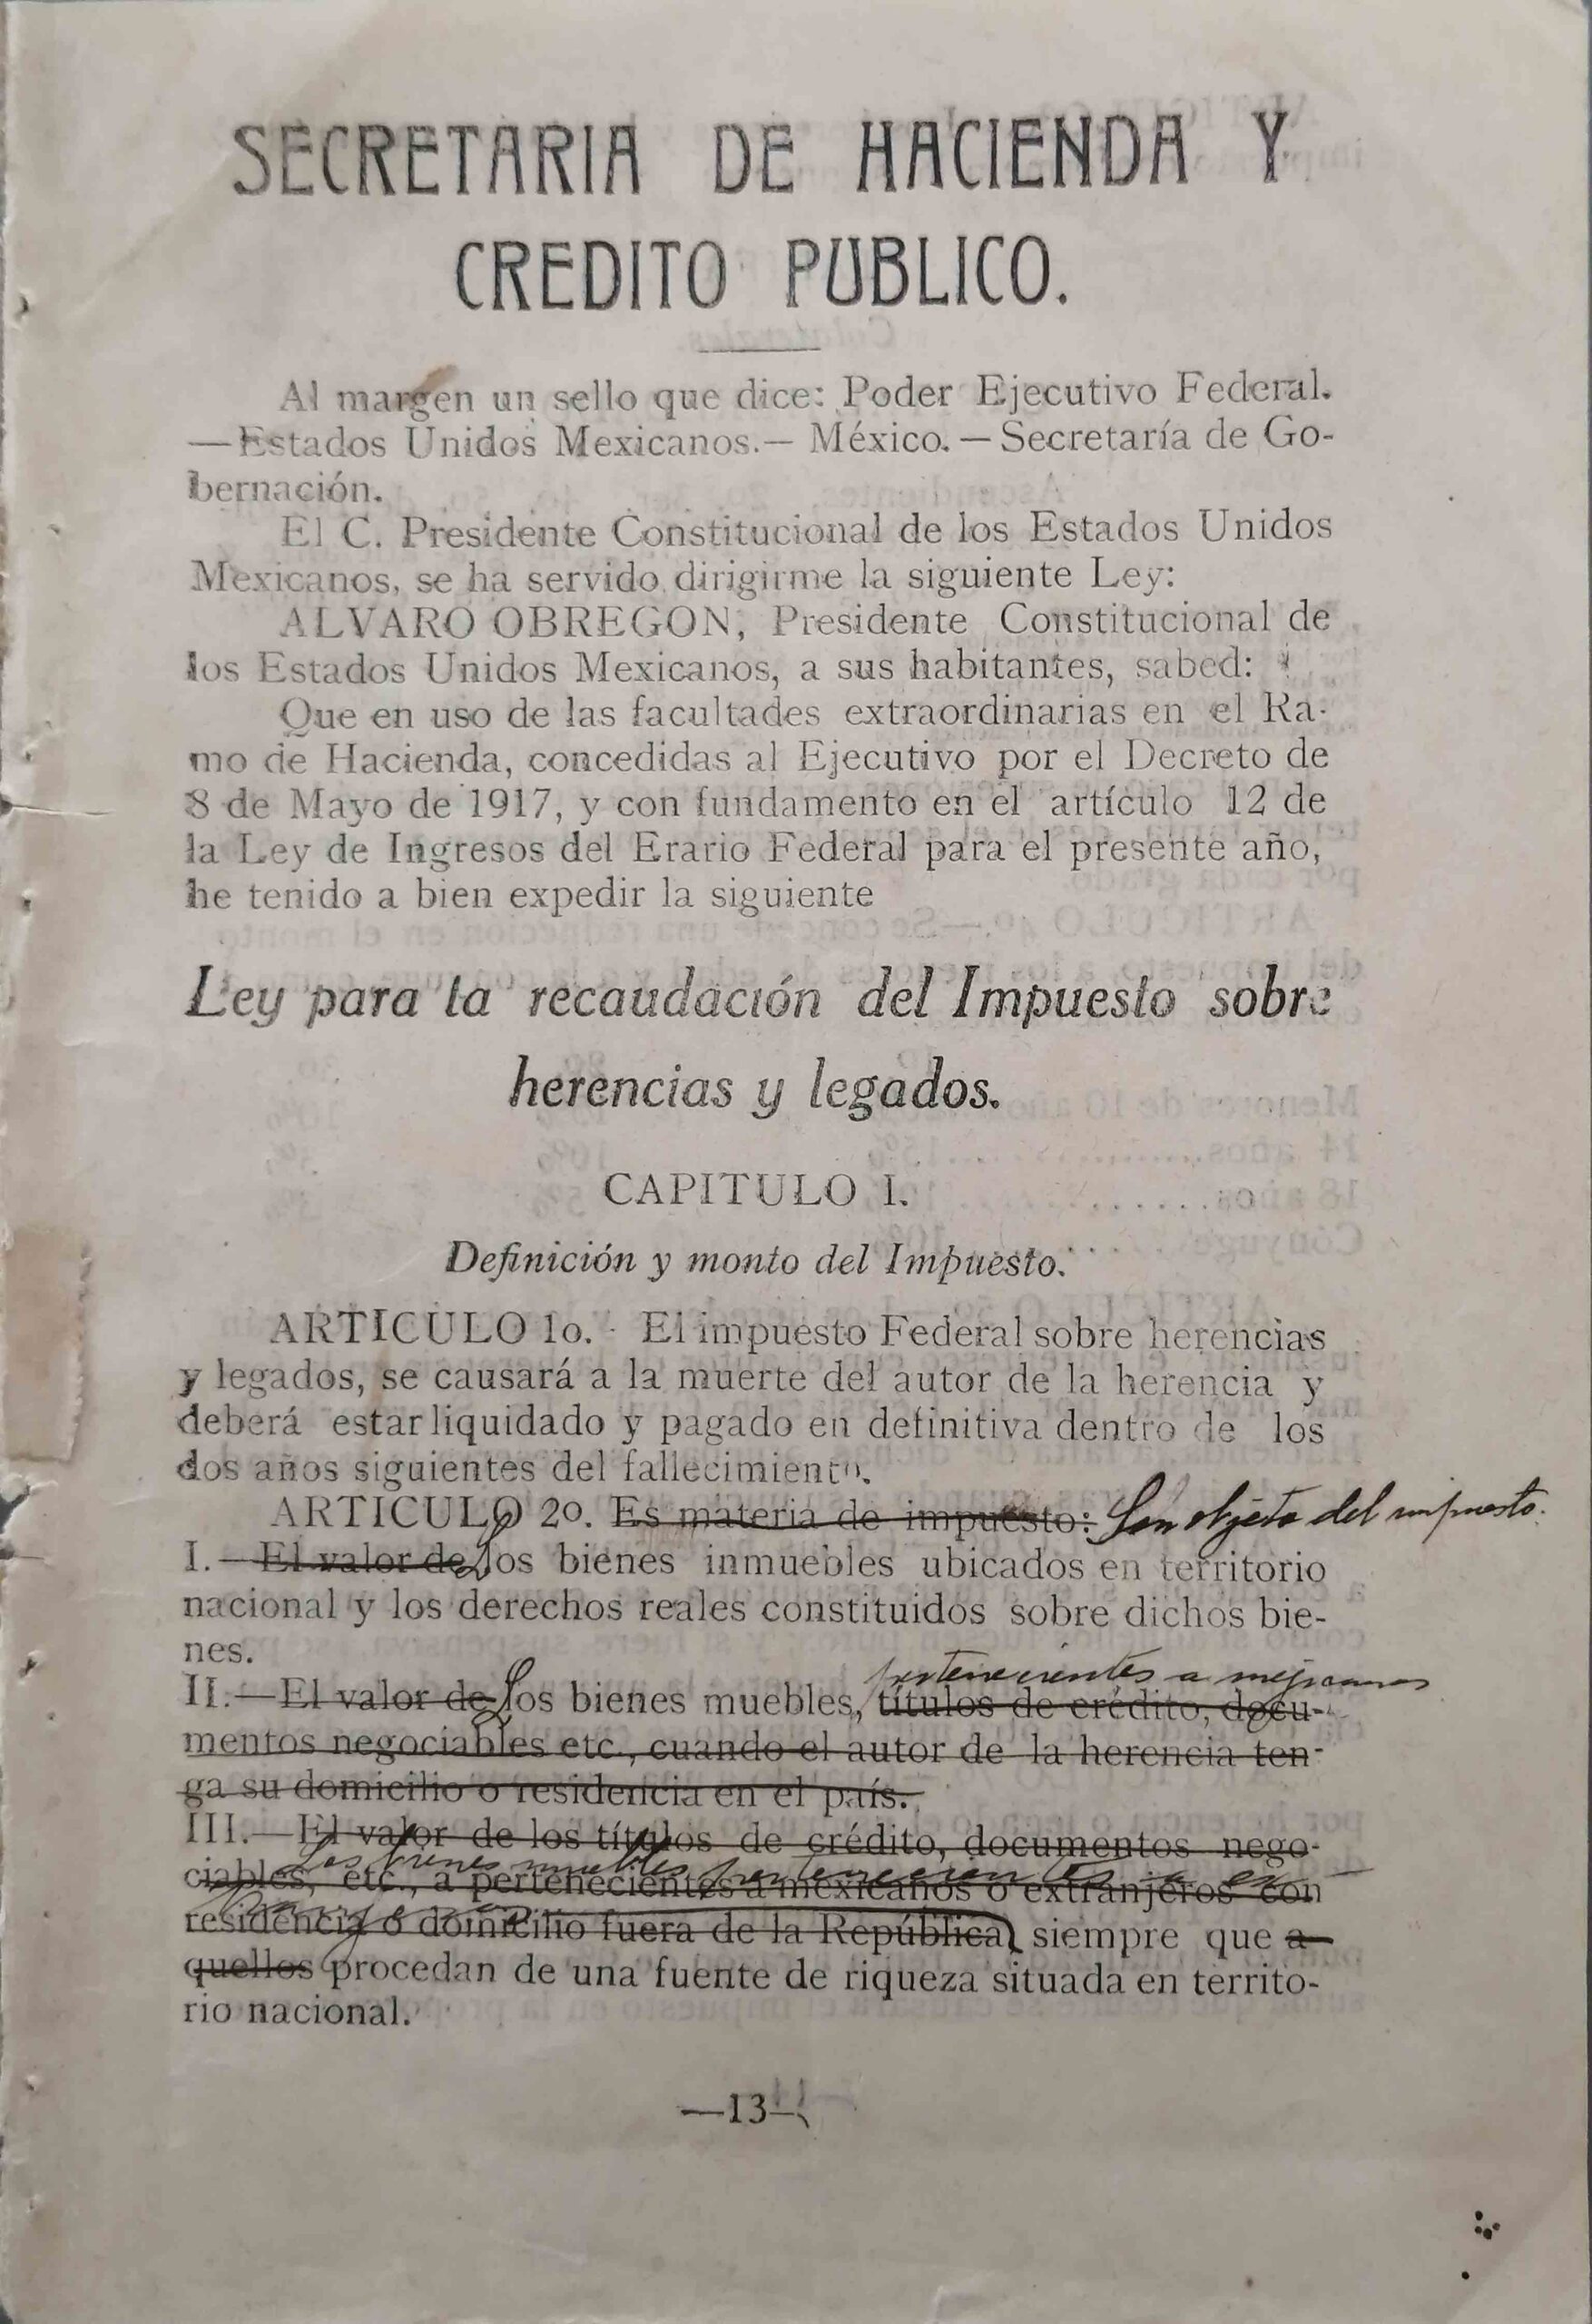 SECRETARIA DE HACIENDA Y
CREDITO PUBLICO.
Al margen un sello que dice: Poder Ejecutivo Federal.
—Estados Unidos Mexicanos.— México. — Secretaría de Go-
bernación.
El C. Presidente Constitucional de los Estados Unidos
Mexicanos, se ha servido dirigirme la siguiente Ley:
ALVARO OBREGON, Presidente Constitucional de
los Estados Unidos Mexicanos, a sus habitantes, sabed:
Que en uso de las facultades extraordinarias en el Ra-
mo de Hacienda, concedidas al Ejecutivo por el Decreto de
8 de Mayo de 1917, y con fundamento en el artículo 12 de
la Ley de Ingresos del Erario Federal para el presente año,
he tenido a bien expedir la siguiente
Ley para la recaudación del Impuesto sobre
herencias y legados.
CAPITULO I.
Definición y monto del Impuesto.
ARTICULO 1o. - El impuesto Federal sobre herencias
y legados, se causará a la muerte del autor de la herencia y
deberá estar liquidado y pagado en definitiva dentro de los
dos años siguientes del fallecimiento.
ARTICULO 2o. Es materia de impuesto: Son objeto del impuesto.
I.—El valor de los bienes inmuebles ubicados en territorio
nacional y los derechos reales constituidos sobre dichos bie-
nes.
pertenecientes a mejicanos
II.—El valor de los bienes muebles, títulos de crédito, docu-
mentos negociables etc., cuando el autor de la herencia ten-
ga su domicilio o residencia en el país.
III.—El valor de los títulos de crédito, documentos nego-
Los bienes muebles pertenecientes a ex-
ciables, etc., a pertenecientes a mexicanos o extranjeros con
tranjeros
residencia o domicilio fuera de la República, siempre que a-
quellos procedan de una fuente de riqueza situada en territo-
rio nacional.
—13—